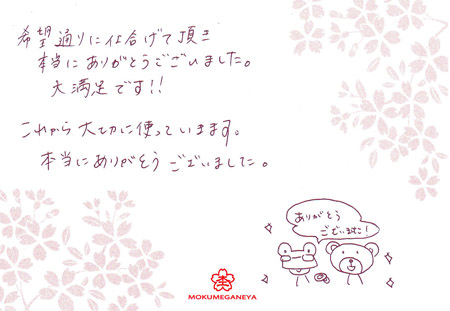 希望通りに仕合げて頂き
本当にありがとうございました。
大満足です!!
これから大切に使っていきます。
本当にありがとうございました。
ありがとう
ございました!
MOKUMEGANEYA